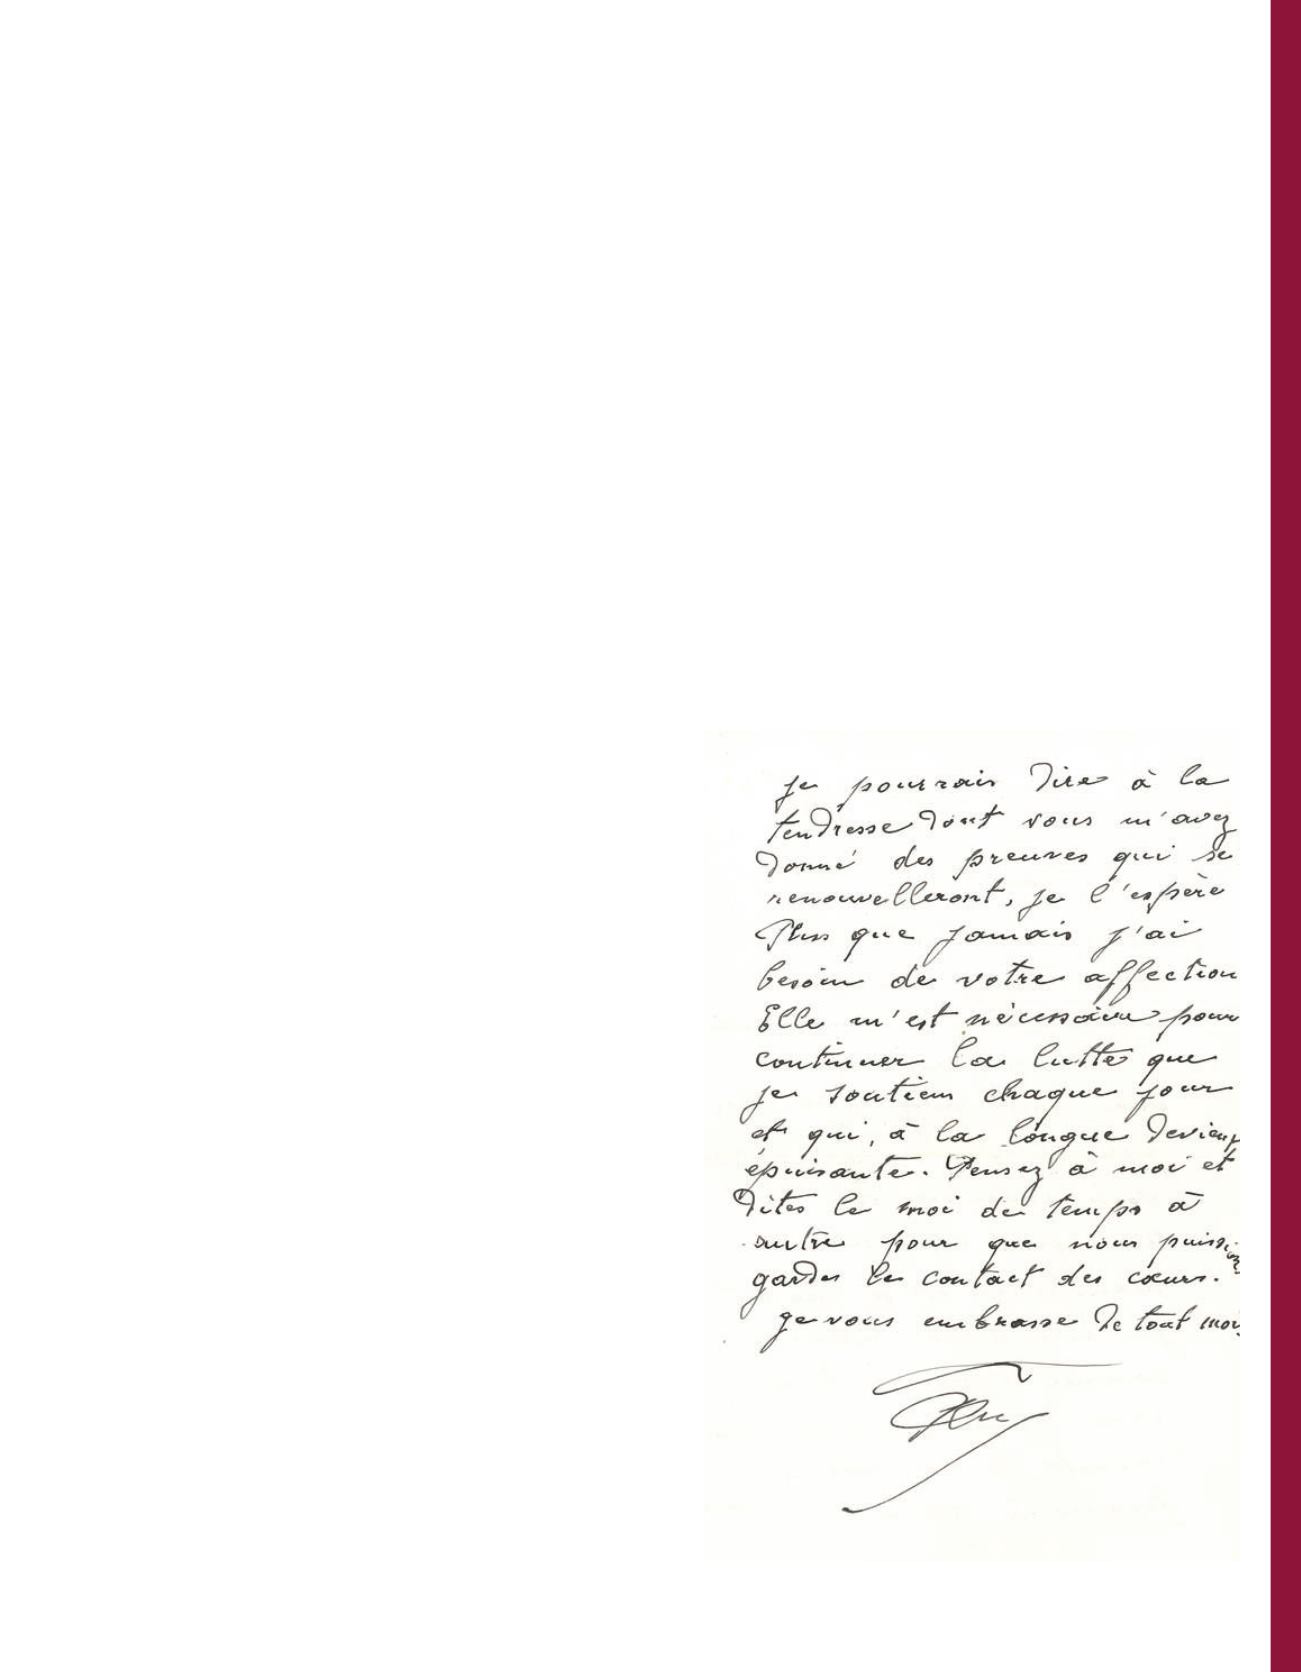 je pourrais dire à la
tendresse dont vous m'avez
donné des preuves qui se
renouvelleront, je l'espère
Plus que jamais j'ai
besoin de votre affection
Elle m'est nécessaire pour
continuer la lutte que
je soutiens chaque jour
et qui, à la longue devient
épuisante. Pensez à moi et
dites le moi de temps à
autre pour que nous puissions
garder le contact des cœurs.
Je vous embrasse de tout moi